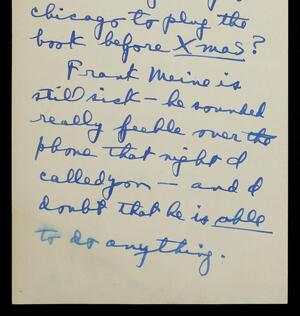 chicago to plug the
book before Xmas?
Frank Meine is
still sick — he sounded
really feeble over the
phone that night I
called you — and I
doubt that he is able
to do anything.